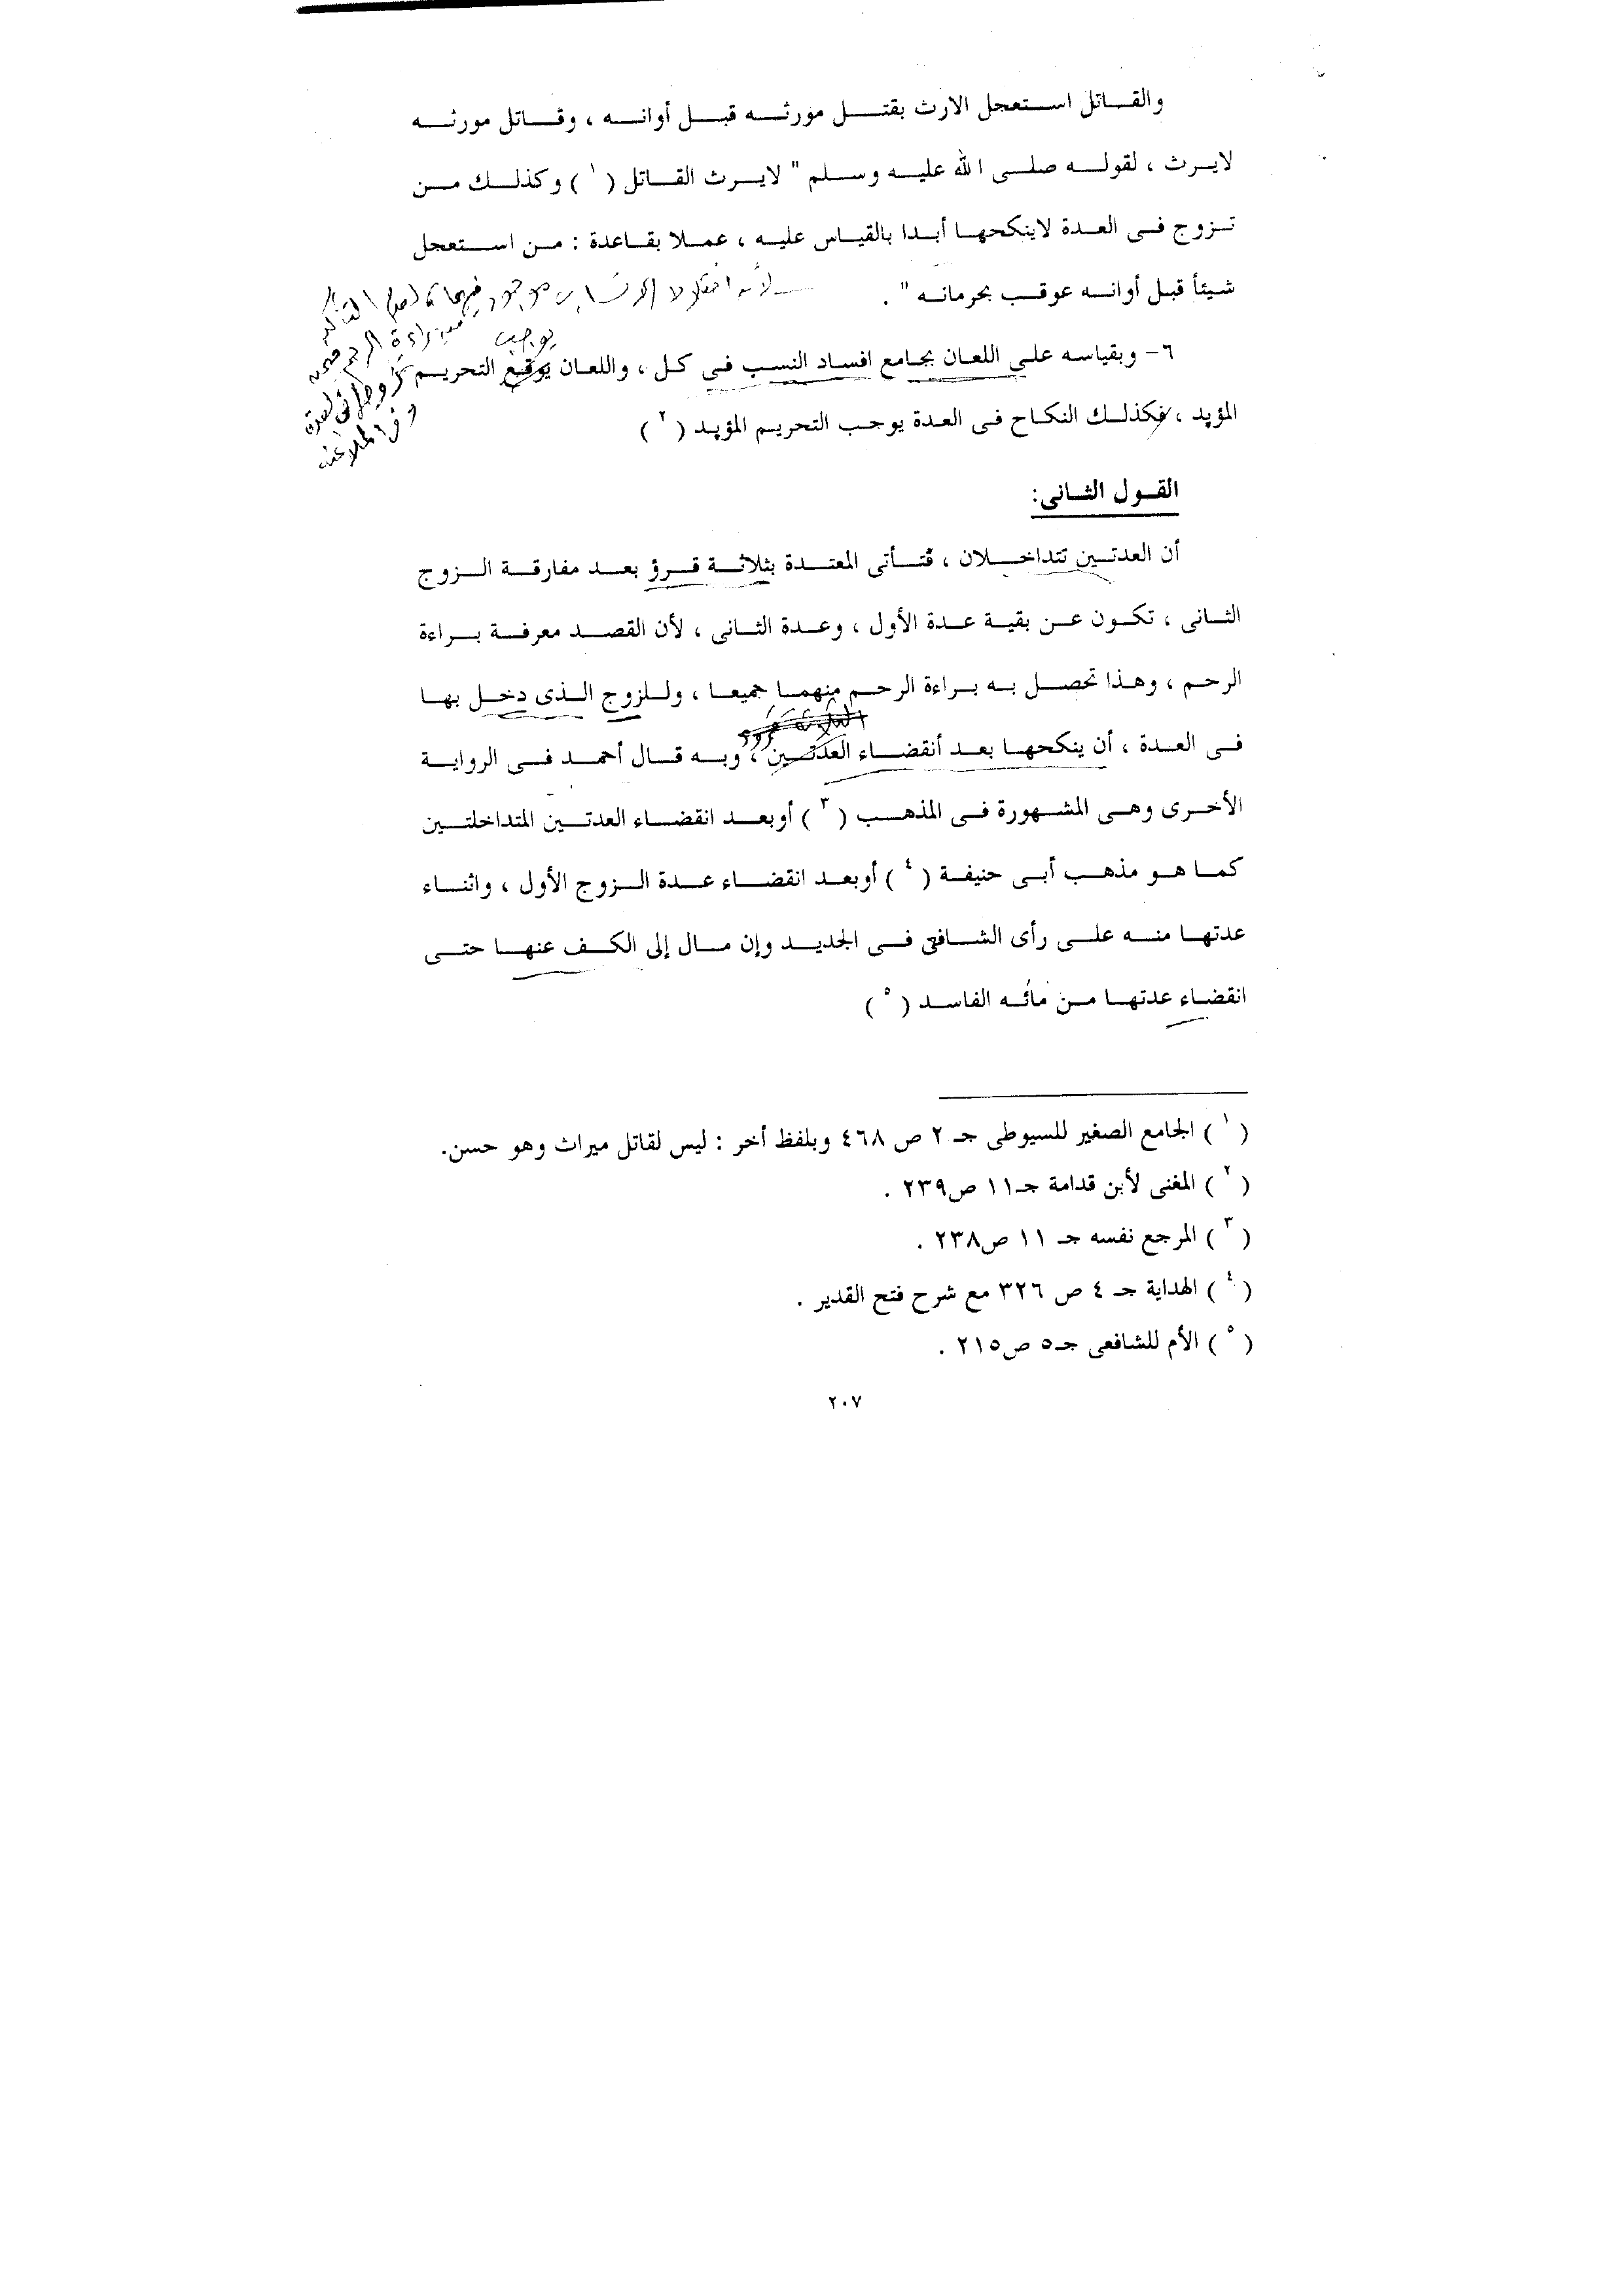 والقاتل استعجل الارث بقتل مورثه قبل أوانه ، وقاتل مورثه
لايرث ، لقوله صلى الله عليه وسلم " لايرث القاتل ( ١ ) وكذلك من
تزوج فى العدة لاينكحها أبدا بالقياس عليه ، عملا بقاعدة : من استعجل
شيئأ قبل أوانه عوقب بحرمانه " .
لأنه اختلاط الانساب موجود فيهما
يوجب
براءة الرحم
٦- وبقياسه على اللعان بجامع افساد النسب فى كل ، واللعان يوقع التحريم
المؤبد ، فكذلك النكاح فى العدة يوجب التحريم المؤبد ( ٢ )
القول الثانى:
أن العدتين تتداخلان ، فتأتى المعتدة بثلاثة قرؤ بعد مفارقة الزوج
الثانى ، تكون عن بقية عدة الأول ، وعدة الثانى ، لأن القصد معرفة براءة
الرحم ، وهذا تحصل به براءة الرحم منهما جميعا ، وللزوج الذى دخل بها
فى العدة ، أن ينكحها بعد أنقضاء العدتين ، وبه قال أحمد فى الرواية
الأخرى وهى المشهورة فى المذهب ( ٣ ) أوبعد انقضاء العدتين المتداخلتين
كما هو مذهب أبى حنيفة ( ٤ ) أوبعد انقضاء عدة الزوج الأول ، واثناء
عدتها منه على رأى الشافعى فى الجديد وإن مال إلى الكف عنها حتى
انقضاء عدتها من مائه الفاسد ( ٥ )
( ١ ) الجامع الصغير للسيوطى جـ ٢ ص ٤٦٨ وبلفظ أخر : ليس لقاتل ميراث وهو حسن.
( ٢ ) المغنى لأبن قدامة جـ١١ ص٢٣٩ .
( ٣ ) المرجع نفسه جـ ١١ ص٢٣٨ .
( ٤ ) الهداية جـ ٤ ص ٣٢٦ مع شرح فتح القدير .
( ٥ ) الأم للشافعى جـ٥ ص٢١٥ .
٢٠٧